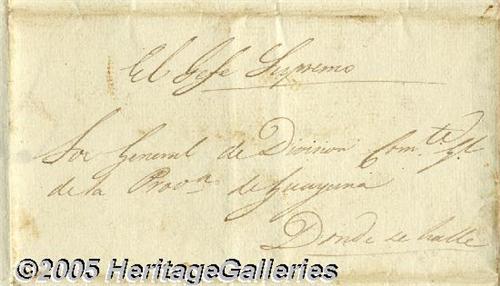 El Gefe Supremo
Sor General de Division Com.te Gl
de la Prova de Guayana
Donde se halle
©2005 HeritageGalleries